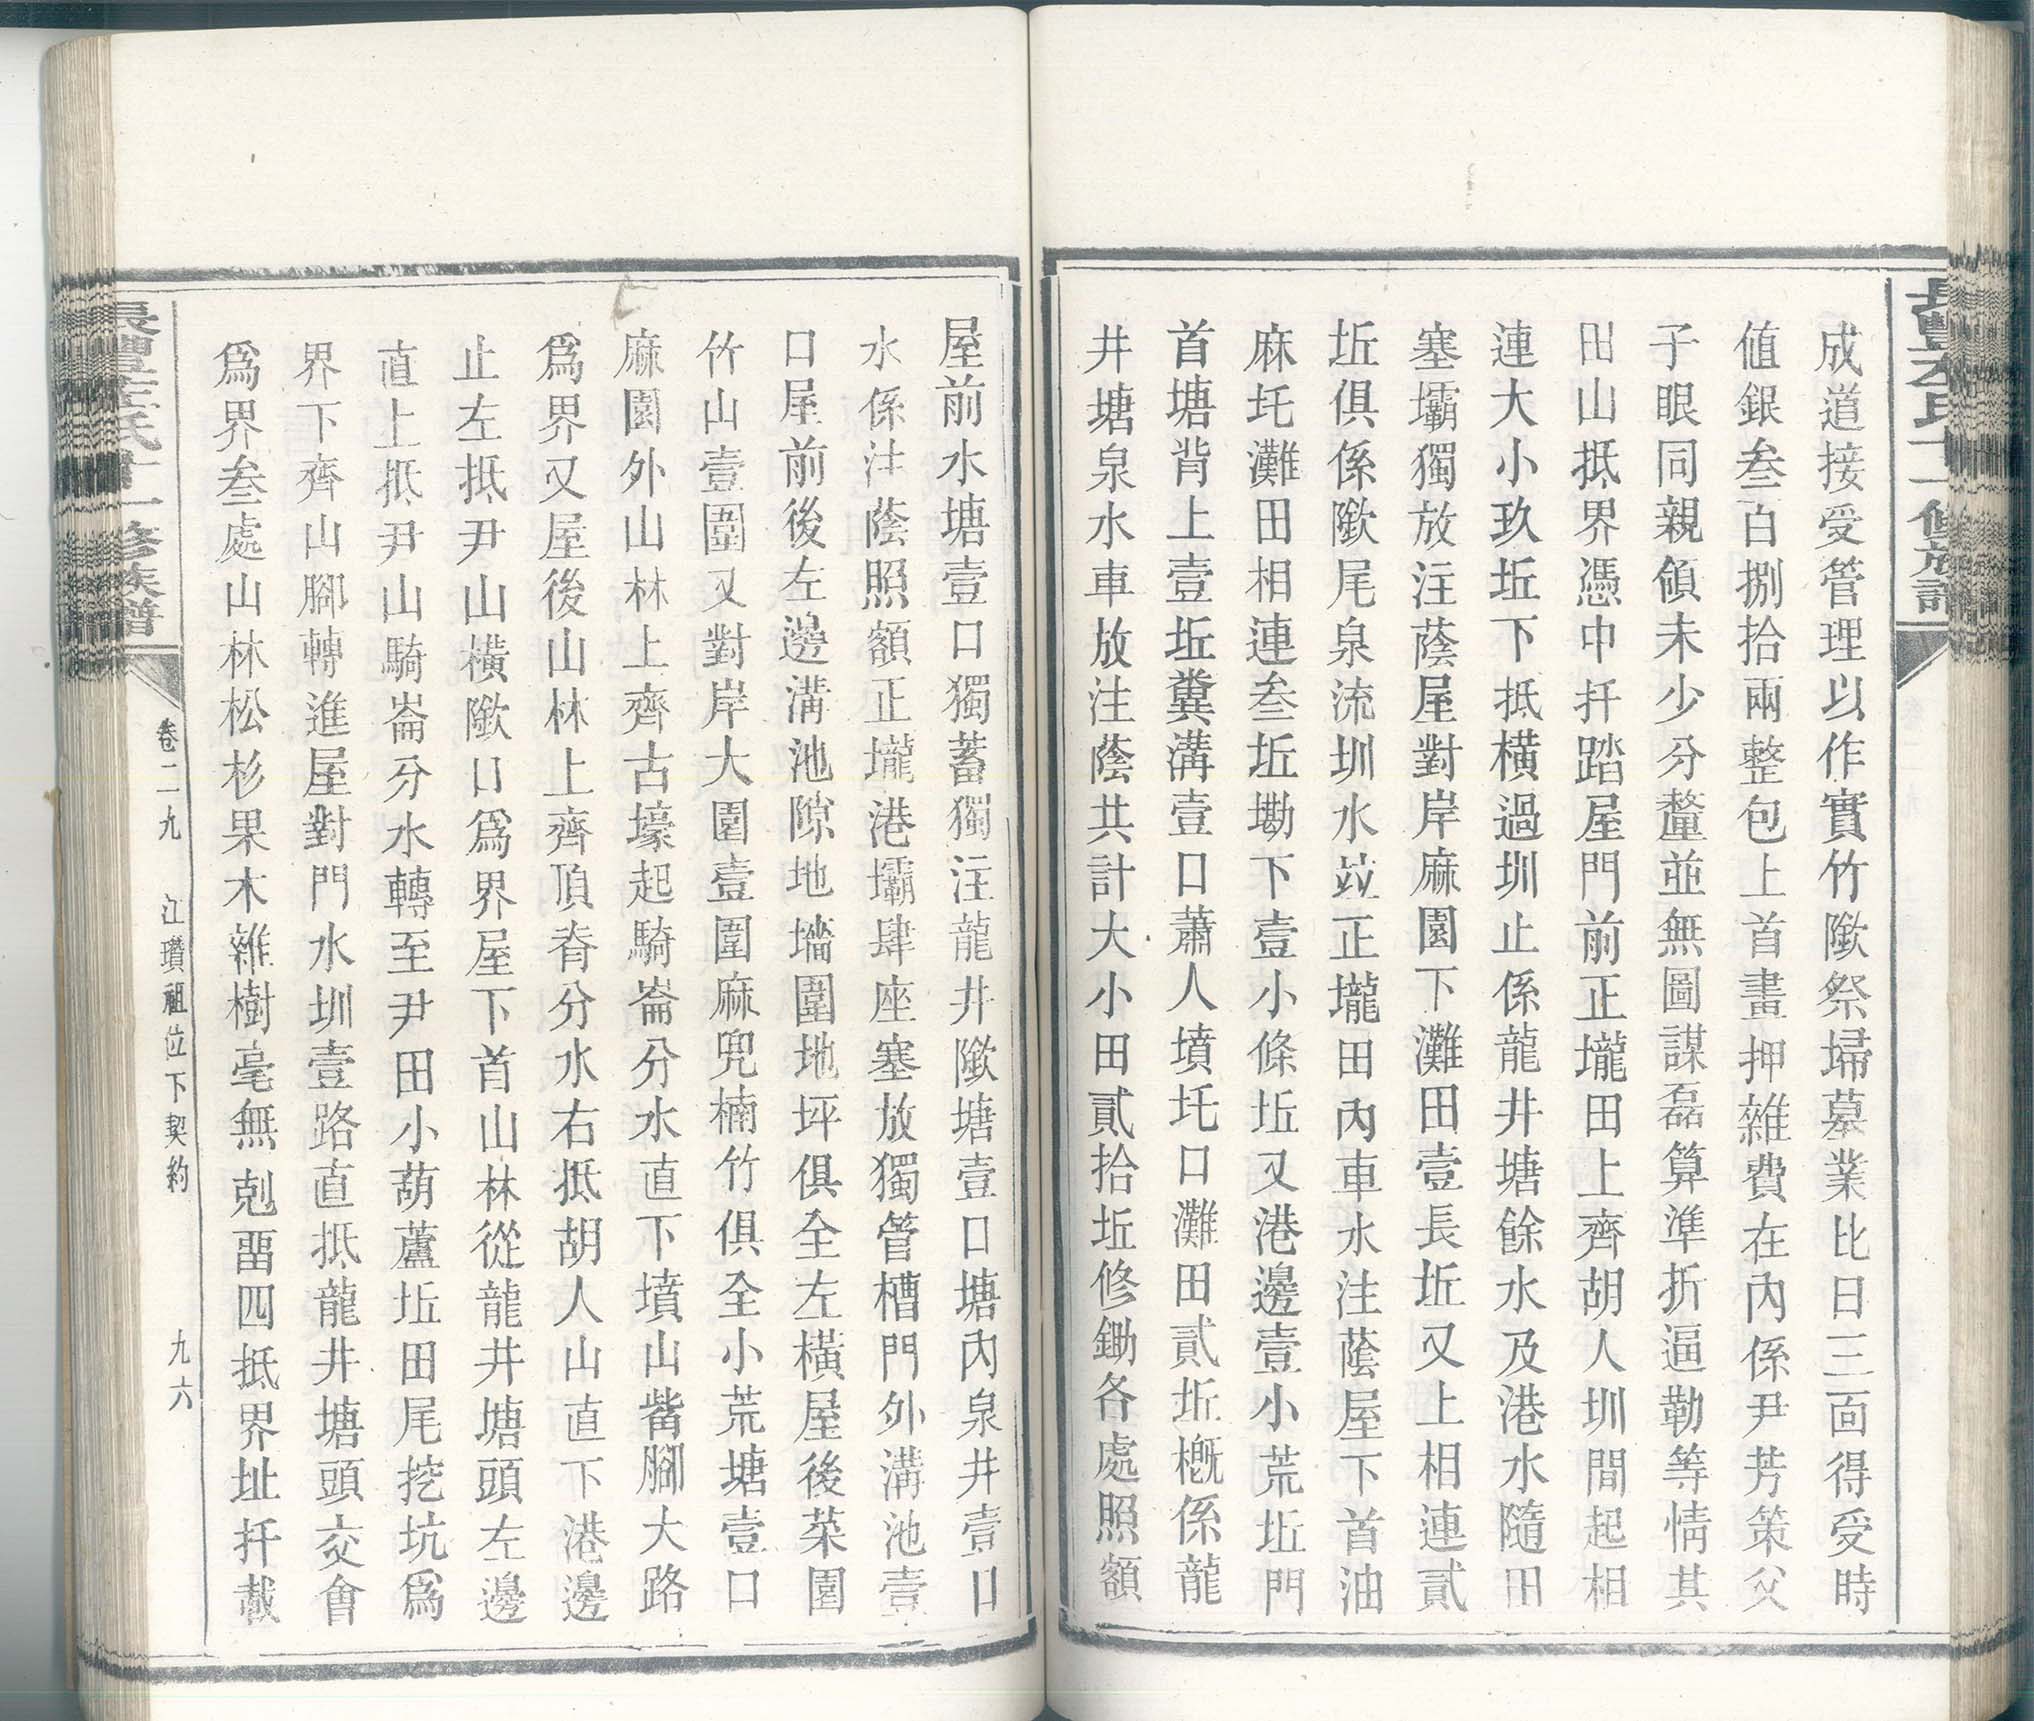 長豐左氏十一修族譜
成道接受管理以作實竹隞祭埽墓業比日三面得受時
值銀叁百捌拾兩整包上首畫押雜費在內係尹芳策父
子眼同親領未少分釐並無圖謀磊算準折逼勒等情其
田山抵界憑中扦踏屋門前正壠田上齊胡人圳間起相
連大小玖坵下抵橫過圳止係龍井塘餘水及港水隨田
塞壩獨放注蔭屋對岸麻園下灘田壹長坵又上相連貳
坵俱係隞尾泉流圳水竝正壠田內車水注蔭屋下首油
麻圫灘田相連叁坵墈下壹小條坵又港邊壹小荒坵門
首塘背上壹坵糞溝壹口蕭人墳圫口灘田貳坵槪係龍
井塘泉水車放注蔭共計大小田貳拾坵修鋤各處照額
屋前水塘壹口獨蓄獨注龍井隞塘壹口塘內泉井壹口
水係注蔭照額正壠港壩肆座塞放獨管槽門外溝池壹
口屋前後左邊溝池隙地墻圍地坪俱全左橫屋後菜園
竹山壹圍又對岸大園壹圍麻兜楠竹俱全小荒塘壹口
麻園外山林上齊古壕起騎崙分水直下墳山觜腳大路
爲界又屋後山林上齊頂脊分水右抵胡人山直下港邊
止左抵尹山橫隞口爲界屋下首山林從龍井塘頭左邊
直上抵尹山騎崙分水轉至尹田小葫蘆坵田尾挖坑爲
界下齊山腳轉進屋對門水圳壹路直抵龍井塘頭交會
爲界叁處山林松杉果木雜樹毫無剋畱四抵界址扦載
長豐左氏十一修族譜
卷二九 江瓚祖位下契約 九六